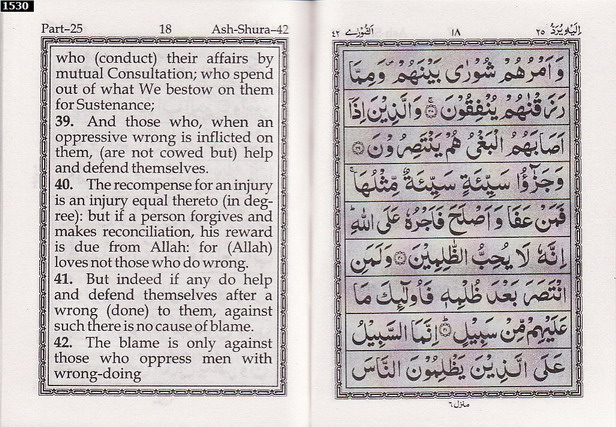 1530
Part-25 18 Ash-Shura-42
who (conduct) their affairs by
mutual Consultation; who spend
out of what We bestow on them
for Sustenance;
39. And those who, when an
oppressive wrong is inflicted on
them, (are not cowed but) help
and defend themselves.
40. The recompense for an injury
is an injury equal thereto (in deg-
ree): but if a person forgives and
makes reconciliation, his reward
is due from Allah: for (Allah)
loves not those who do wrong.
41. But indeed if any do help
and defend themselves after a
wrong (done) to them, against
such there is no cause of blame.
42. The blame is only against
those who oppress men with
wrong-doing
اليه يرد ٢٥ ١٨ الشورى ٤٢
وَاَمْرُهُمْ شُوْرٰى بَيْنَهُمْ وَمِمَّا
رَزَقْنٰهُمْ يُنْفِقُوْنَ ﴿٣٨﴾ وَالَّذِيْنَ اِذَا
اَصَابَهُمُ الْبَغْيُ هُمْ يَنْتَصِرُوْنَ ﴿٣٩﴾
وَجَزٰٓؤُا سَيِّئَةٍ سَيِّئَةٌ مِّثْلُهَا ۚ
فَمَنْ عَفَا وَاَصْلَحَ فَاَجْرُهٗ عَلَى اللّٰهِ ؕ
اِنَّهٗ لَا يُحِبُّ الظّٰلِمِيْنَ ﴿٤٠﴾ وَلَمَنِ
انْتَصَرَ بَعْدَ ظُلْمِهٖ فَاُولٰٓئِكَ مَا
عَلَيْهِمْ مِّنْ سَبِيْلٍ ﴿٤١﴾ اِنَّمَا السَّبِيْلُ
عَلَى الَّذِيْنَ يَظْلِمُوْنَ النَّاسَ
منزل ٦